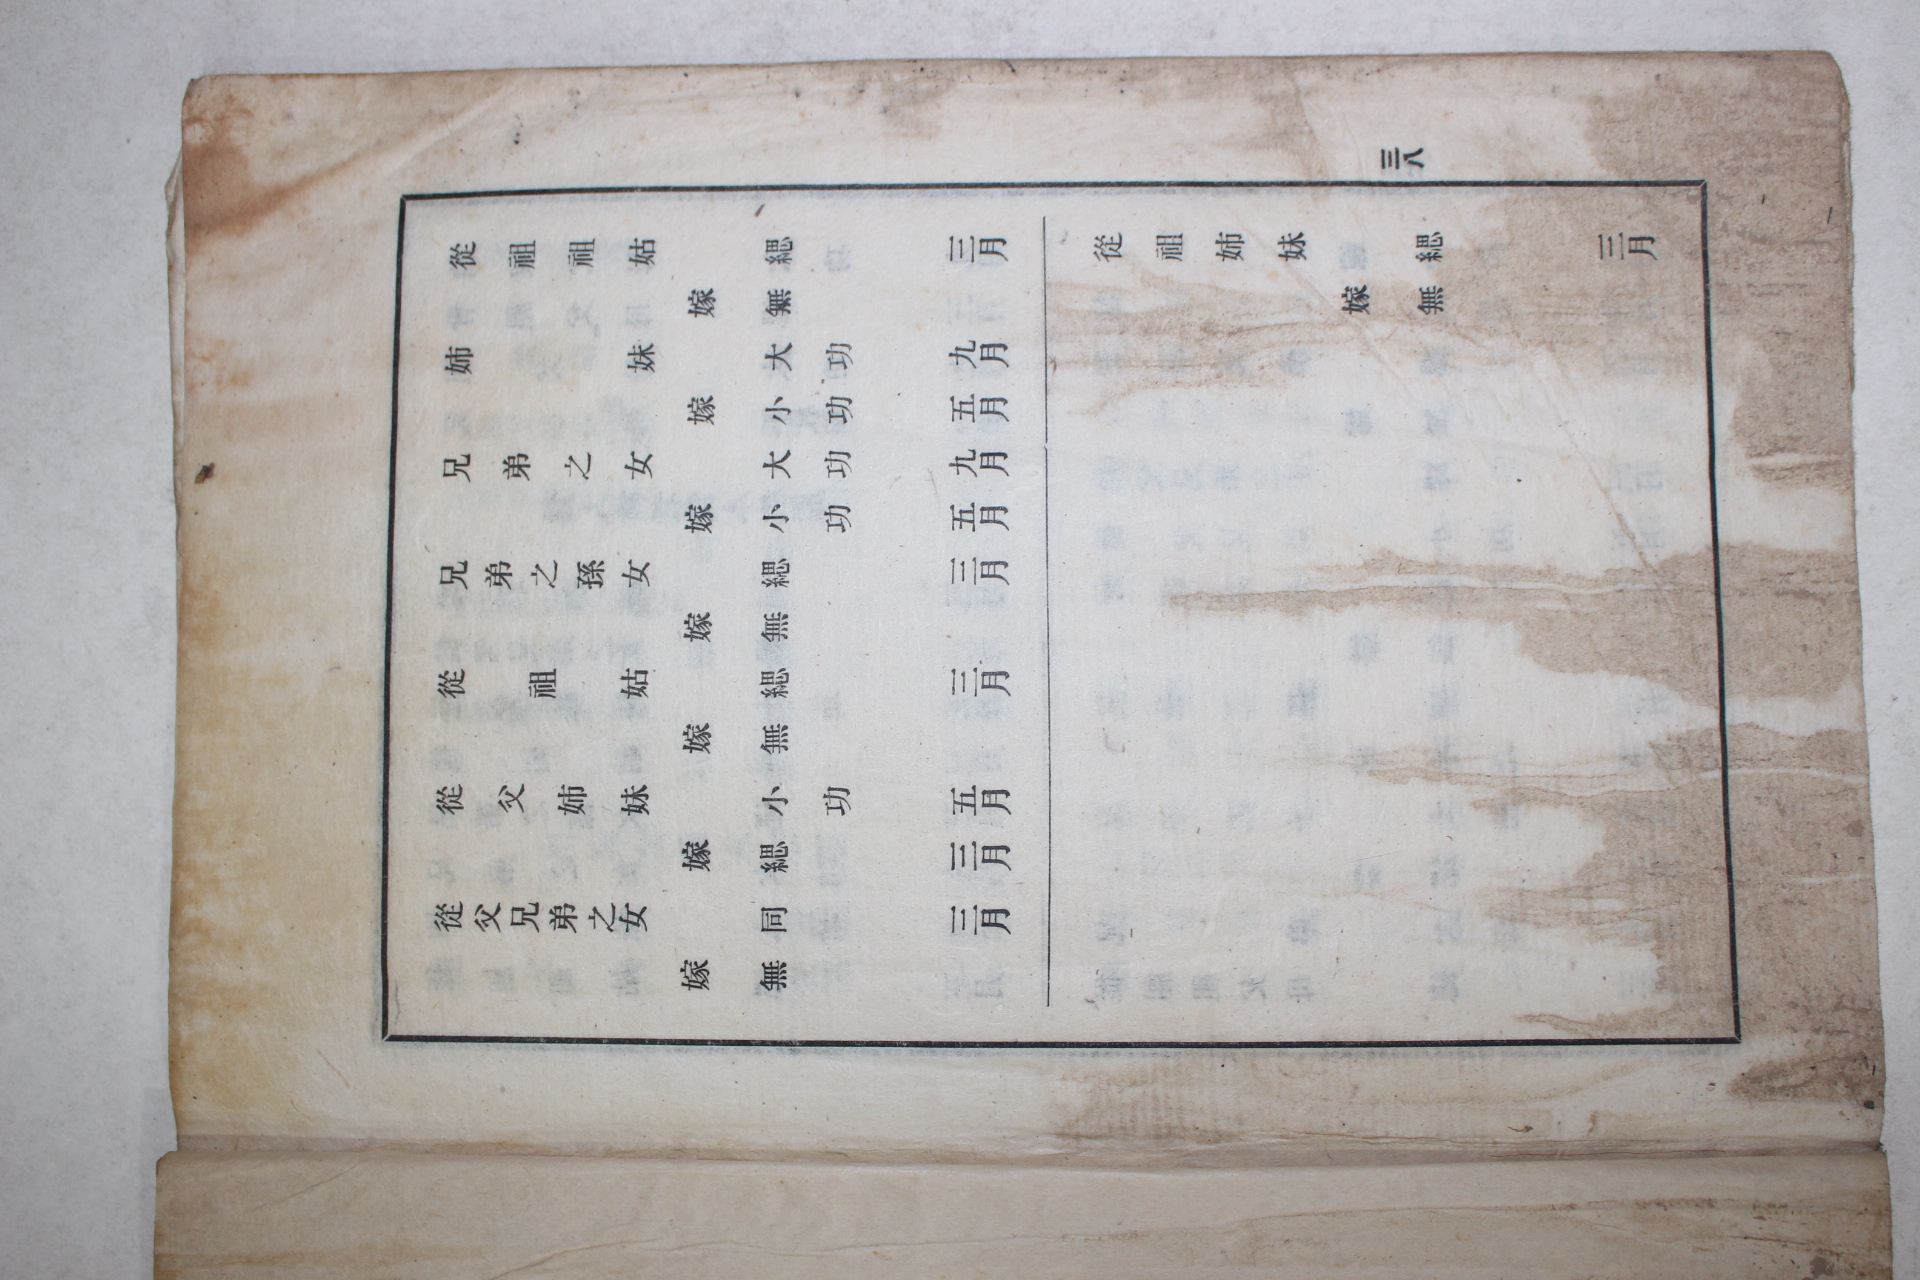 三八
從祖祖姑 緦 三月
嫁 無
姉妹 大功 九月
嫁 小功 五月
兄弟之女 大功 九月
嫁 小功 五月
兄弟之孫女 緦 三月
嫁 無
從祖姑 緦 三月
嫁 無
從父姉妹 小功 五月
嫁 緦 三月
從父兄弟之女 同 三月
嫁 無
從祖姉妹 緦 三月
嫁 無